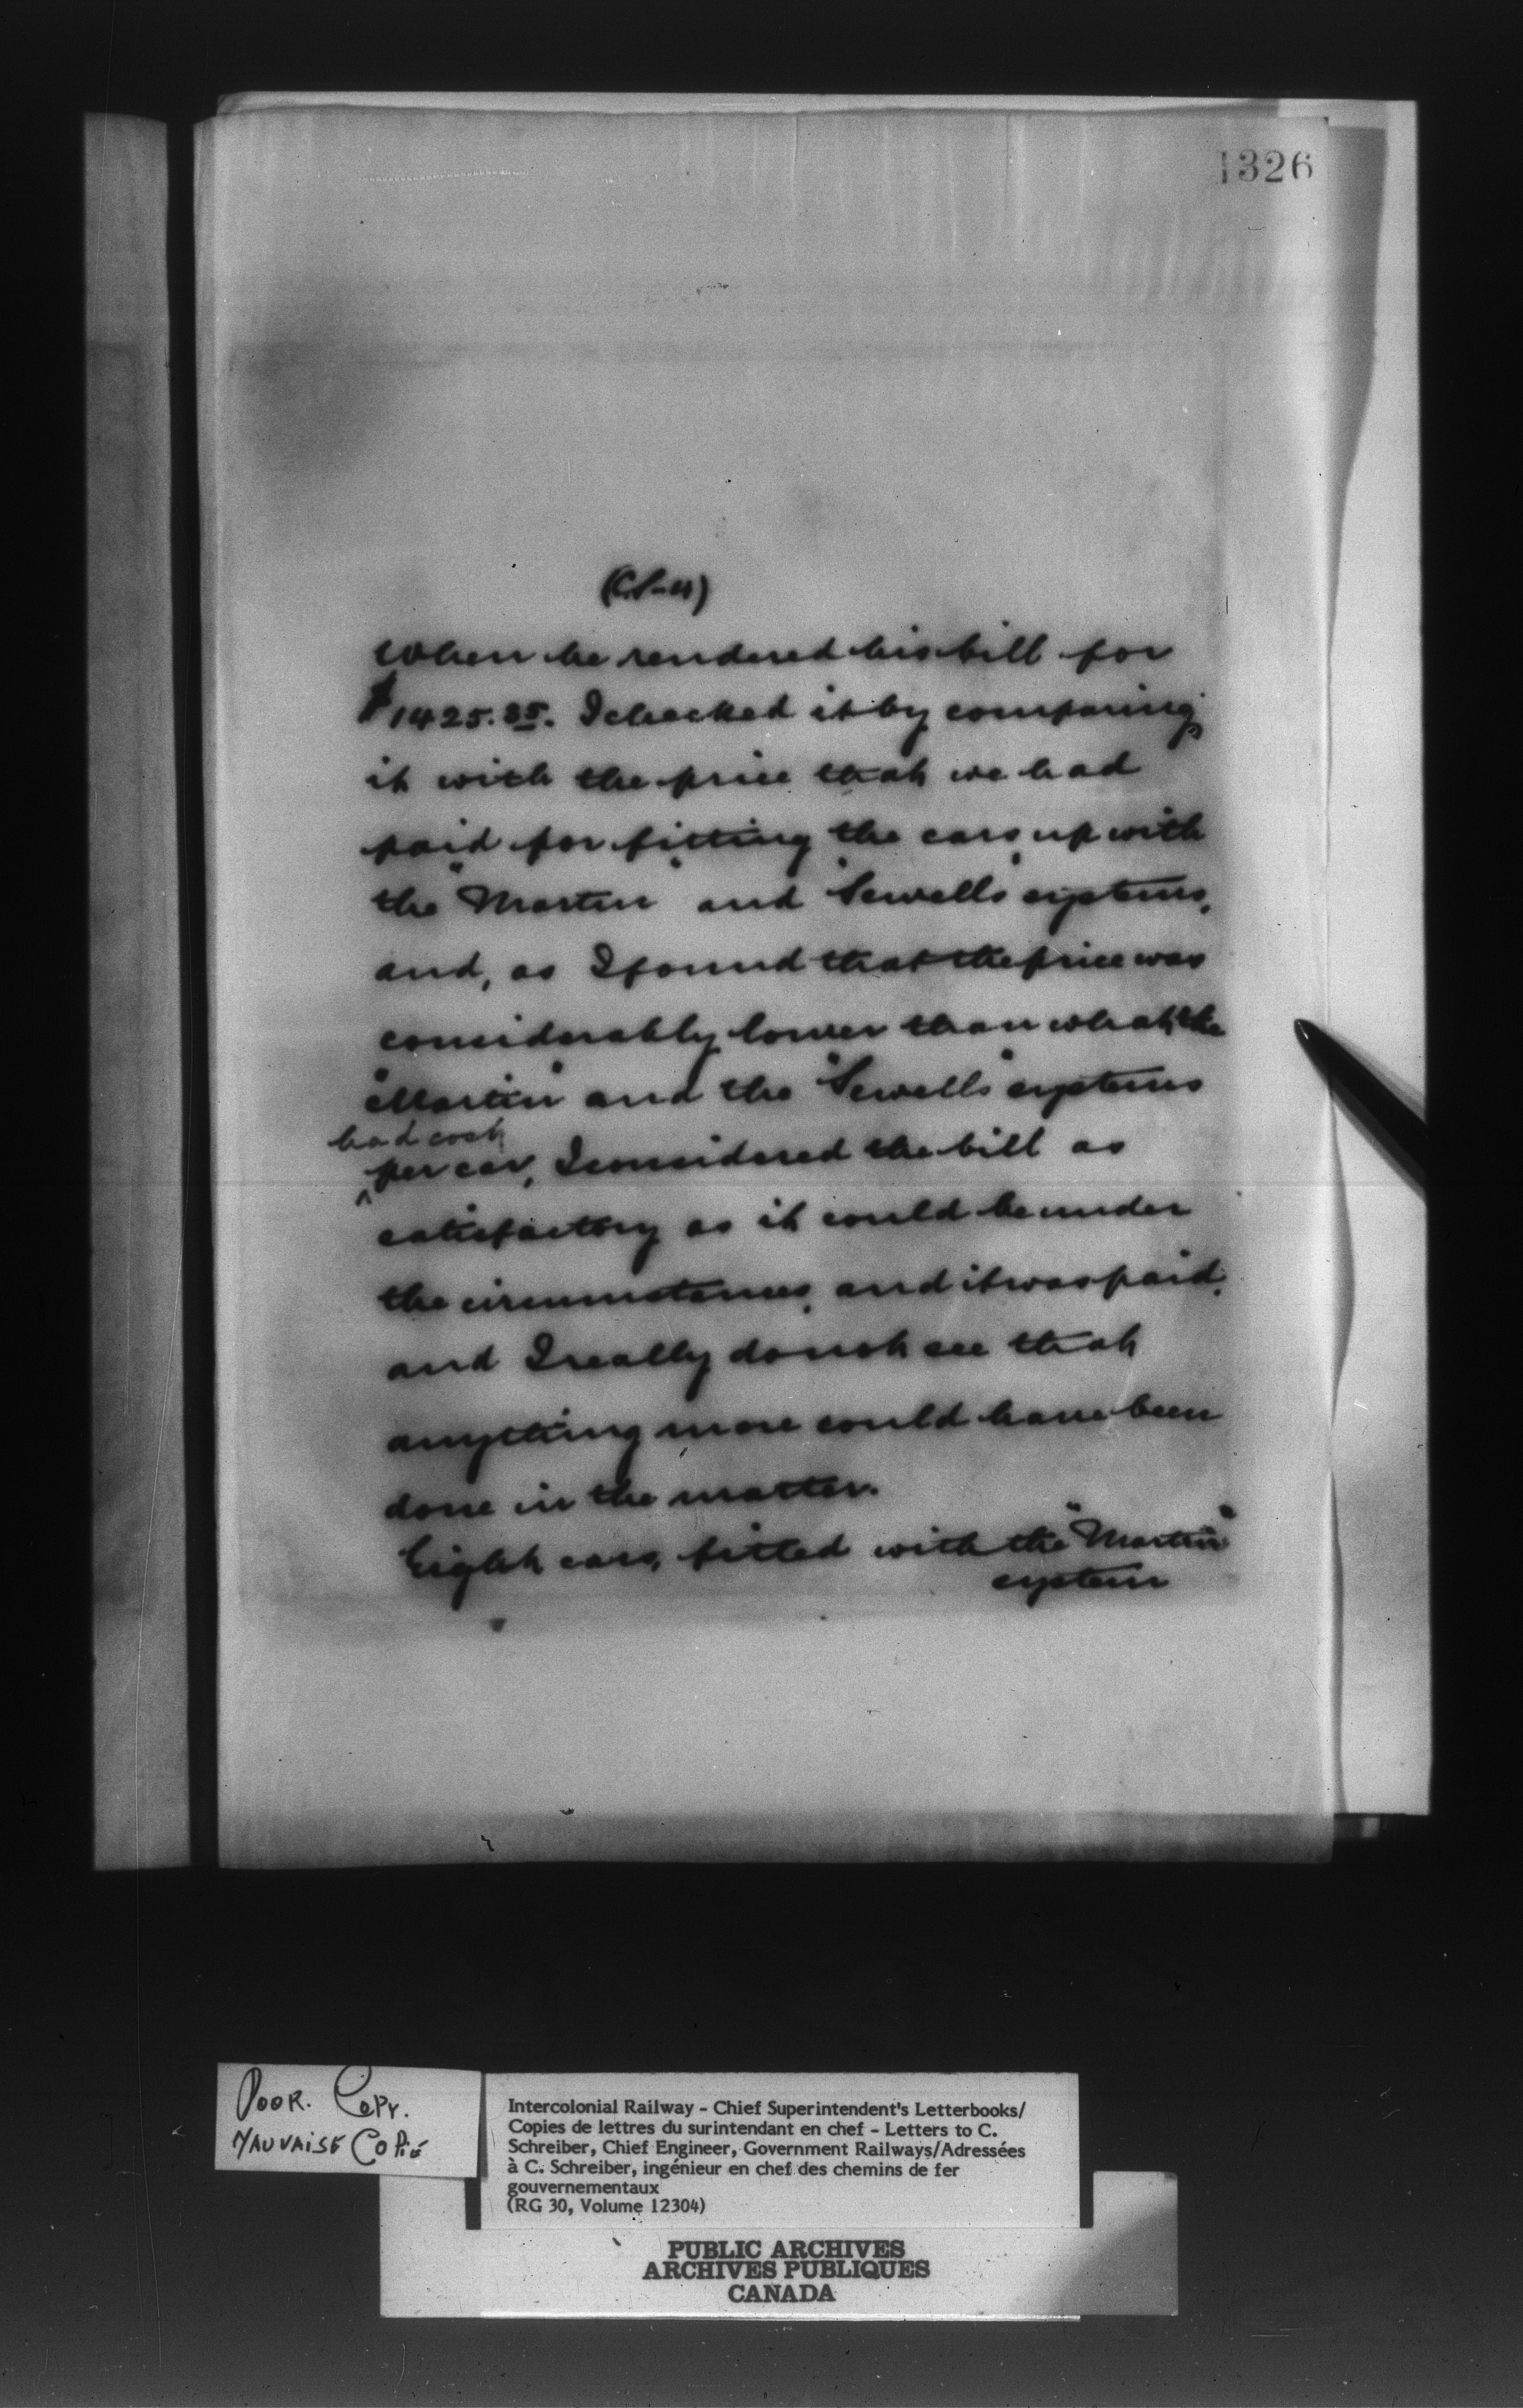 1326
(C.S-4)
When he rendered his bill for
$1425.35. I checked it by comparing
it with the price that we had
paid for fitting the cars up with
the "Martin" and "Sewells" systems,
and, as I found that the price was
considerably lower than what the
"Martin" and the "Sewells" systems
had cost
^ per car, I considered the bill as
satisfactory as it could be under
the circumstances, and it was paid,
and I really do not see that
anything more could have been
done in the matter.
Eight cars, fitted with the "Martin"
system
POOR. COPY.
MAUVAISE COPIE
Intercolonial Railway - Chief Superintendent's Letterbooks/
Copies de lettres du surintendant en chef - Letters to C.
Schreiber, Chief Engineer, Government Railways/Adressées
à C. Schreiber, ingénieur en chef des chemins de fer
gouvernementaux
(RG 30, Volume 12304)
PUBLIC ARCHIVES
ARCHIVES PUBLIQUES
CANADA